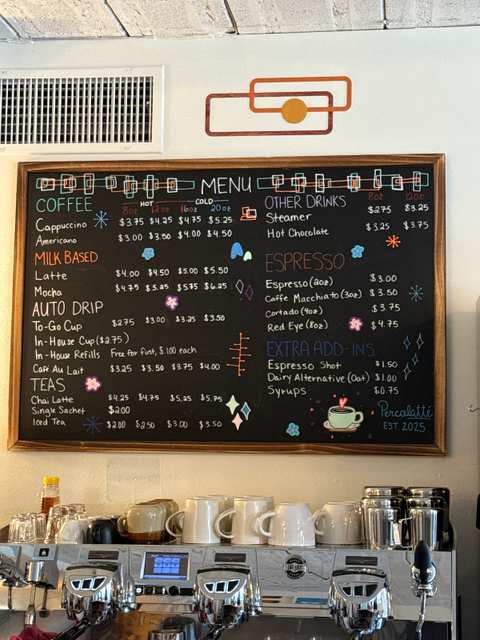 MENU
COFFEE
HOT COLD
8oz 12oz 16oz 20oz
Cappuccino $3.75 $4.25 $4.75 $5.25
Americano $3.00 $3.50 $4.00 $4.50
MILK BASED
Latte $4.00 $4.50 $5.00 $5.50
Mocha $4.75 $5.25 $5.75 $6.25
AUTO DRIP
To-Go Cup $2.75 $3.00 $3.25 $3.50
In-House Cup ($2.75)
In-House Refills Free for first, $.100 each
Café Au Lait $3.25 $3.50 $3.75 $4.00
TEAS
Chai Latte $4.25 $4.75 $5.25 $5.75
Single Sachet $2.00
Iced Tea $2.00 $2.50 $3.00 $3.50
OTHER DRINKS 8oz 12oz
Steamer $2.75 $3.25
Hot Chocolate $3.25 $3.75
ESPRESSO
Espresso (2oz) $3.00
Caffe Macchiato (3oz) $3.50
Cortado (4oz) $3.75
Red Eye (8oz) $4.75
EXTRA ADD-INS
Espresso Shot $1.50
Dairy Alternative (Oat) $1.00
Syrups $0.75
Percolatté
EST 2025